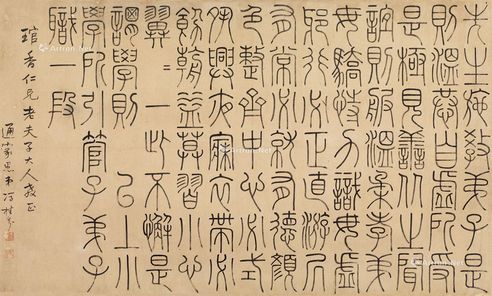 先生施教弟子是
則溫恭自虛所受
是極見善从之聞
誼則服溫柔孝弟
毋驕恃力識毋虛
邪行必正直游凥
有常必就有德顏
色整齊中心必式
夙興夜寐衣帶必
飭朝益莫習小心
翼〻一此不懈是
謂學則 已上小
學所引管子弟子
職一段
琯香仁兄老夫子大人教正
通家愚弟馮桂芬